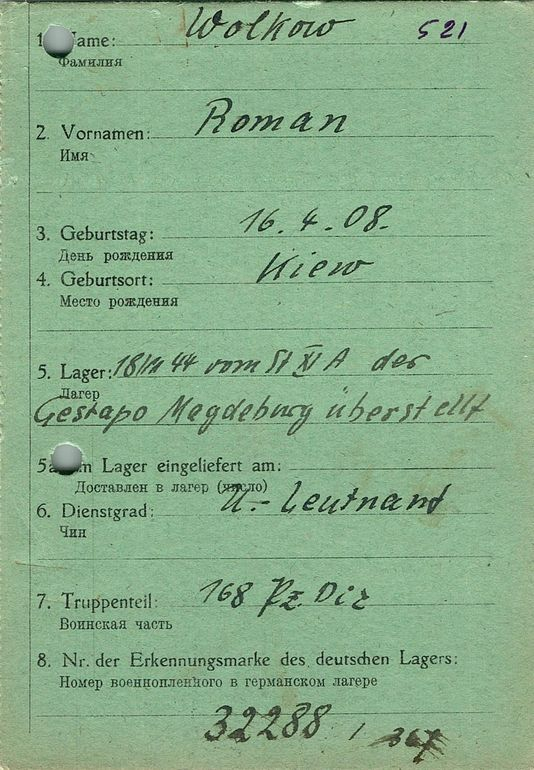 1. Name: Wolkow 521
Фамилия
2. Vornamen: Roman
Имя
3. Geburtstag: 16.4.08.
День рождения
4. Geburtsort: Kiew
Место рождения
5. Lager: 44 vom St XI A der
Лагер
Gestapo Magdeburg überstellt
Lager eingeliefert am:
Доставлен в лагер (число)
6. Dienstgrad: U.-Leutnant
Чин
7. Truppenteil: 168 Pz. Div
Воинская часть
8. Nr. der Erkennungsmarke des deutschen Lagers:
Номер военнопленного в германском лагере
32288 /